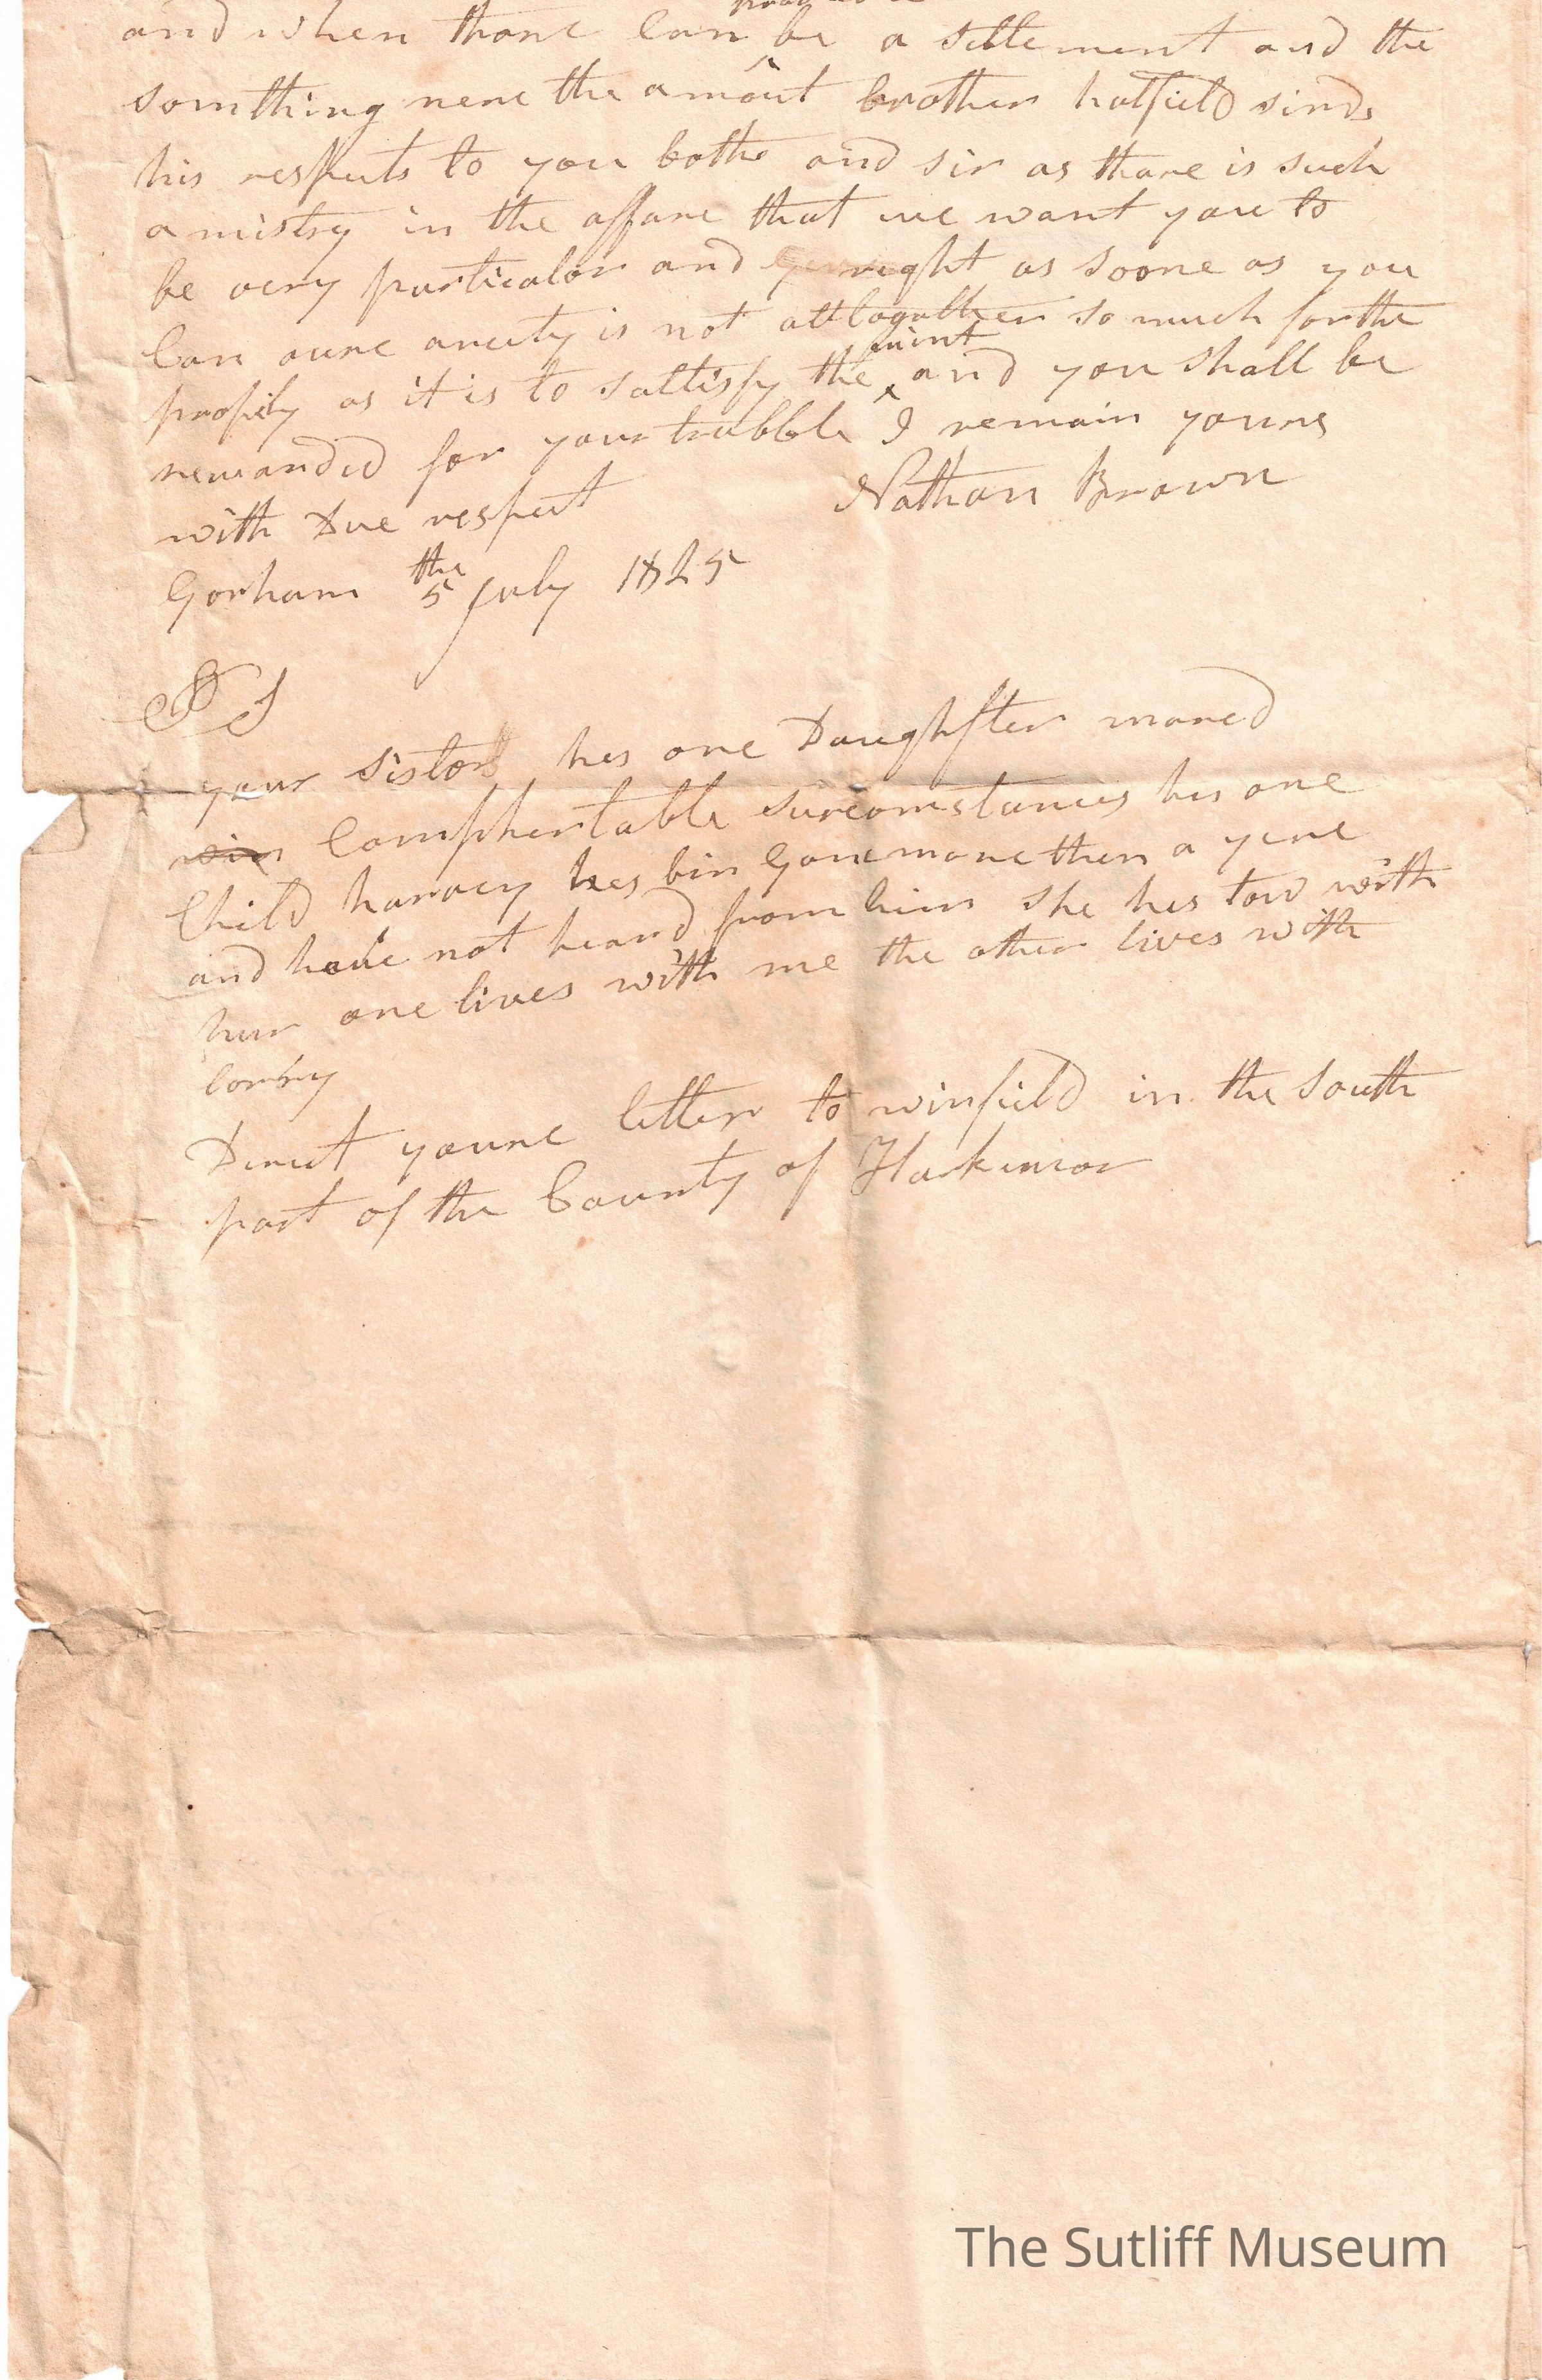 and when thare Can be a settlement and the
somthing nere the amout brother hatfield sinds
his respects to you bothe and sir as thare is such
a mistry in the affare that we want you to
be very particalar and right as soone as you
Can oure anxity is not alltogather so much for the
propity as it is to sattisfy the mint and you shall be
rewarded for your trubble I remain yours
with Due respect Nathan Brown
Gorham the 5 July 1825
PS
your sister hes one Daughter mared
Comphertable surcomstances hes one
Child harvey hes bin Gone more then a yere
and have not heard from him she hes tow with
hur one lives with me the other lives with
Direct youre letter to winfield in the South
part of the County of Harkimor
The Sutliff Museum